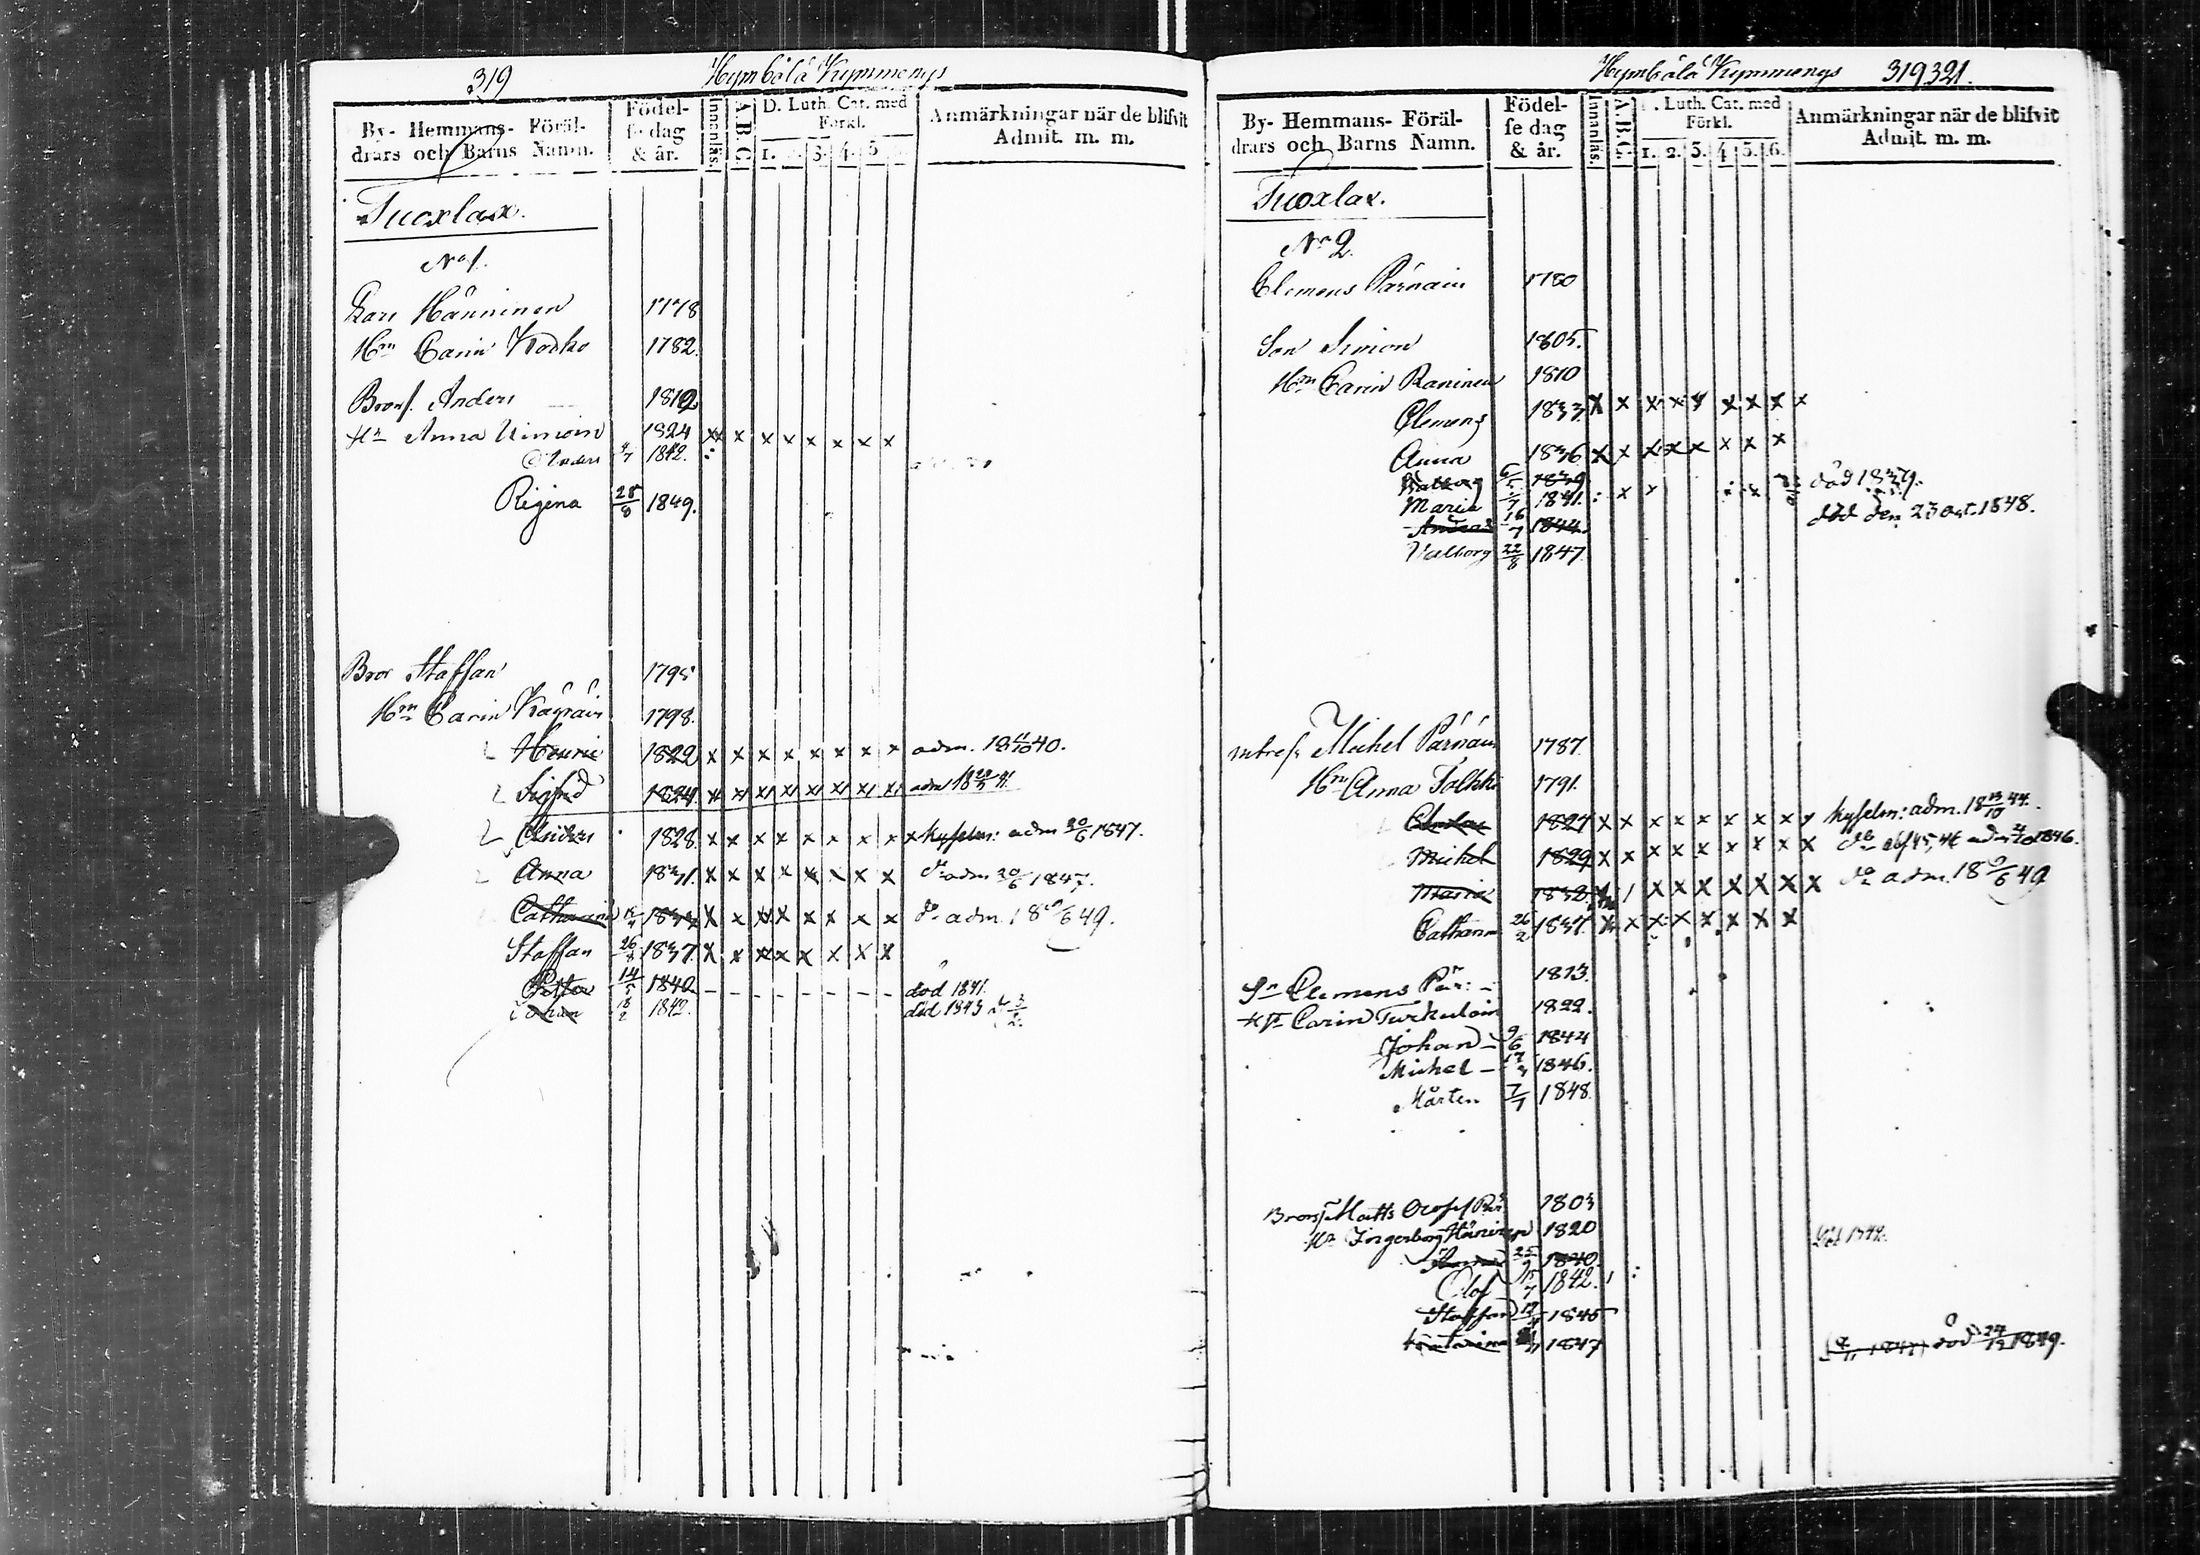 319 Hymbölä Kymmenys
By- Hemmans- Föräl-
drars och Barns Namn.
Födel-
se dag
& år.
Innanläs.
A. B. C.
D. Luth. Cat. med
Förkl.
1. 3. 4. 5.
Anmärkningar när de blifvit
Admit. m. m.
Tuoxlax.
No 1.
Lars Hänninen 1778
Hm Carin Kocko 1782.
Brors. Anders 1819
Hu Anna Uimoin 1824 x x x x x x x x
Anders 4/7 1842. :
Regina 28/8 1849.
Bror Staffan 1795
Hm Carin Käyräin 1798.
Henric 1822 x x x x x x x x adm. 18 40.
Sigfrid 1824. x x x x x x x x adm 18 41
Anders 1828 x x x x x x x x x kyselm: adm 20/6 1847.
Anna 1831. x x x x x x x x do adm 20/6 1847.
Catharina 1834 x x x x x x x x do adm. 18 /6 49.
Staffan 26/8 1837. x x x x x x x x
Petter 14/5 1840 - - - - - - - - död 1841.
Johan 18/2 1842. död 1843
Hymbölä Kymmenys 319 321.
By- Hemmans- Föräl-
drars och Barns Namn.
Födel-
se dag
& år.
Innanläs.
A. B. C.
Luth. Cat. med
Förkl.
1. 2. 3. 4. 5. 6.
Anmärkningar när de blifvit
Admit. m. m.
Tuoxlax.
No 2.
Clemens Pärnäin 1780
Son Simon 1805.
Hm Carin Raninen 1810
Clemens 1833 x x x x x x x x x
Anna 1836 x x x x x x x x
Valborg 6/5 1839 död 1839.
Maria 1841. : x x
Anders 16/7 1844. död den 23 oct. 1848.
Valborg 22/8 1847.
Michel Pärnäin 1787.
Hn Anna Tolkki 1791.
1827 x x x x x x x x x kyselm: adm. 18 44.
Michel 1829 x x x x x x x x x do 45, 46 adm 1846.
Maria 1832. x x x x x x x do adm. 18 9/6 49
Catharin 26/2 1837. x x x x x x x x
Sn Clemens Pär: - 1813.
Hu Carin Turkuloin 1822.
Johan - 9/6 1844
Michel - 1846.
Mårten 7/7 1848.
Brors. Matts Pär 1803
Hu Ingerborg Häninen 1820
25/9 1840. död 1842.
Olof 1842. :
Staffan 1845
Katarina 1847 död 24/12 1849.